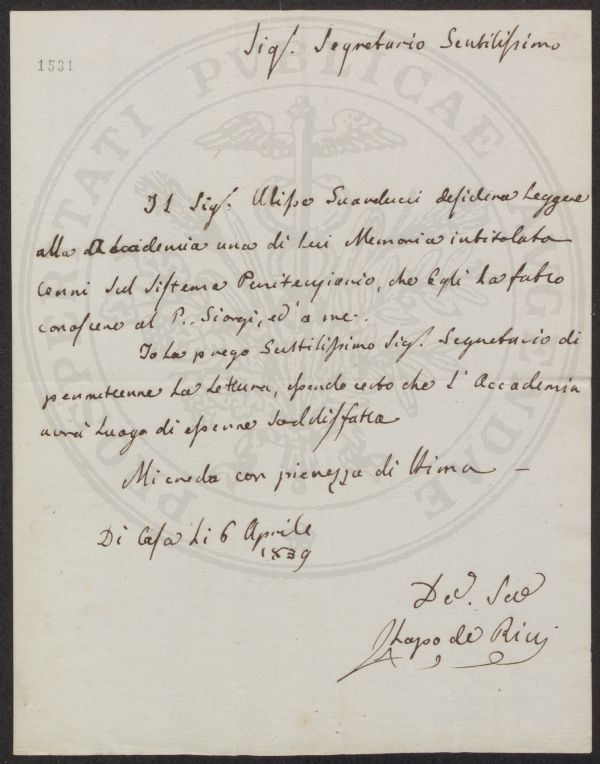 1531
Sigr. Segretario Gentilissimo
Il Sigr. Ulisse Guarducci desidera Leggere
alla Accademia una di Lui Memoria intitolata
Cenni sul Sistema Penitenziario, che Egli ha fatto
conoscere al P. Giorgi, ed a me.
Io La prego Gentilissimo Sigr. Segretario di
permetterne La Lettura, essendo certo che l'Accademia
avrà Luogo di esserne soddisfatta
Mi creda con pienezza di stima —
Di Casa Li 6 Aprile
1839
Lapo de Ricci
PROSPERITATI PUBLICAE AUGENDAE